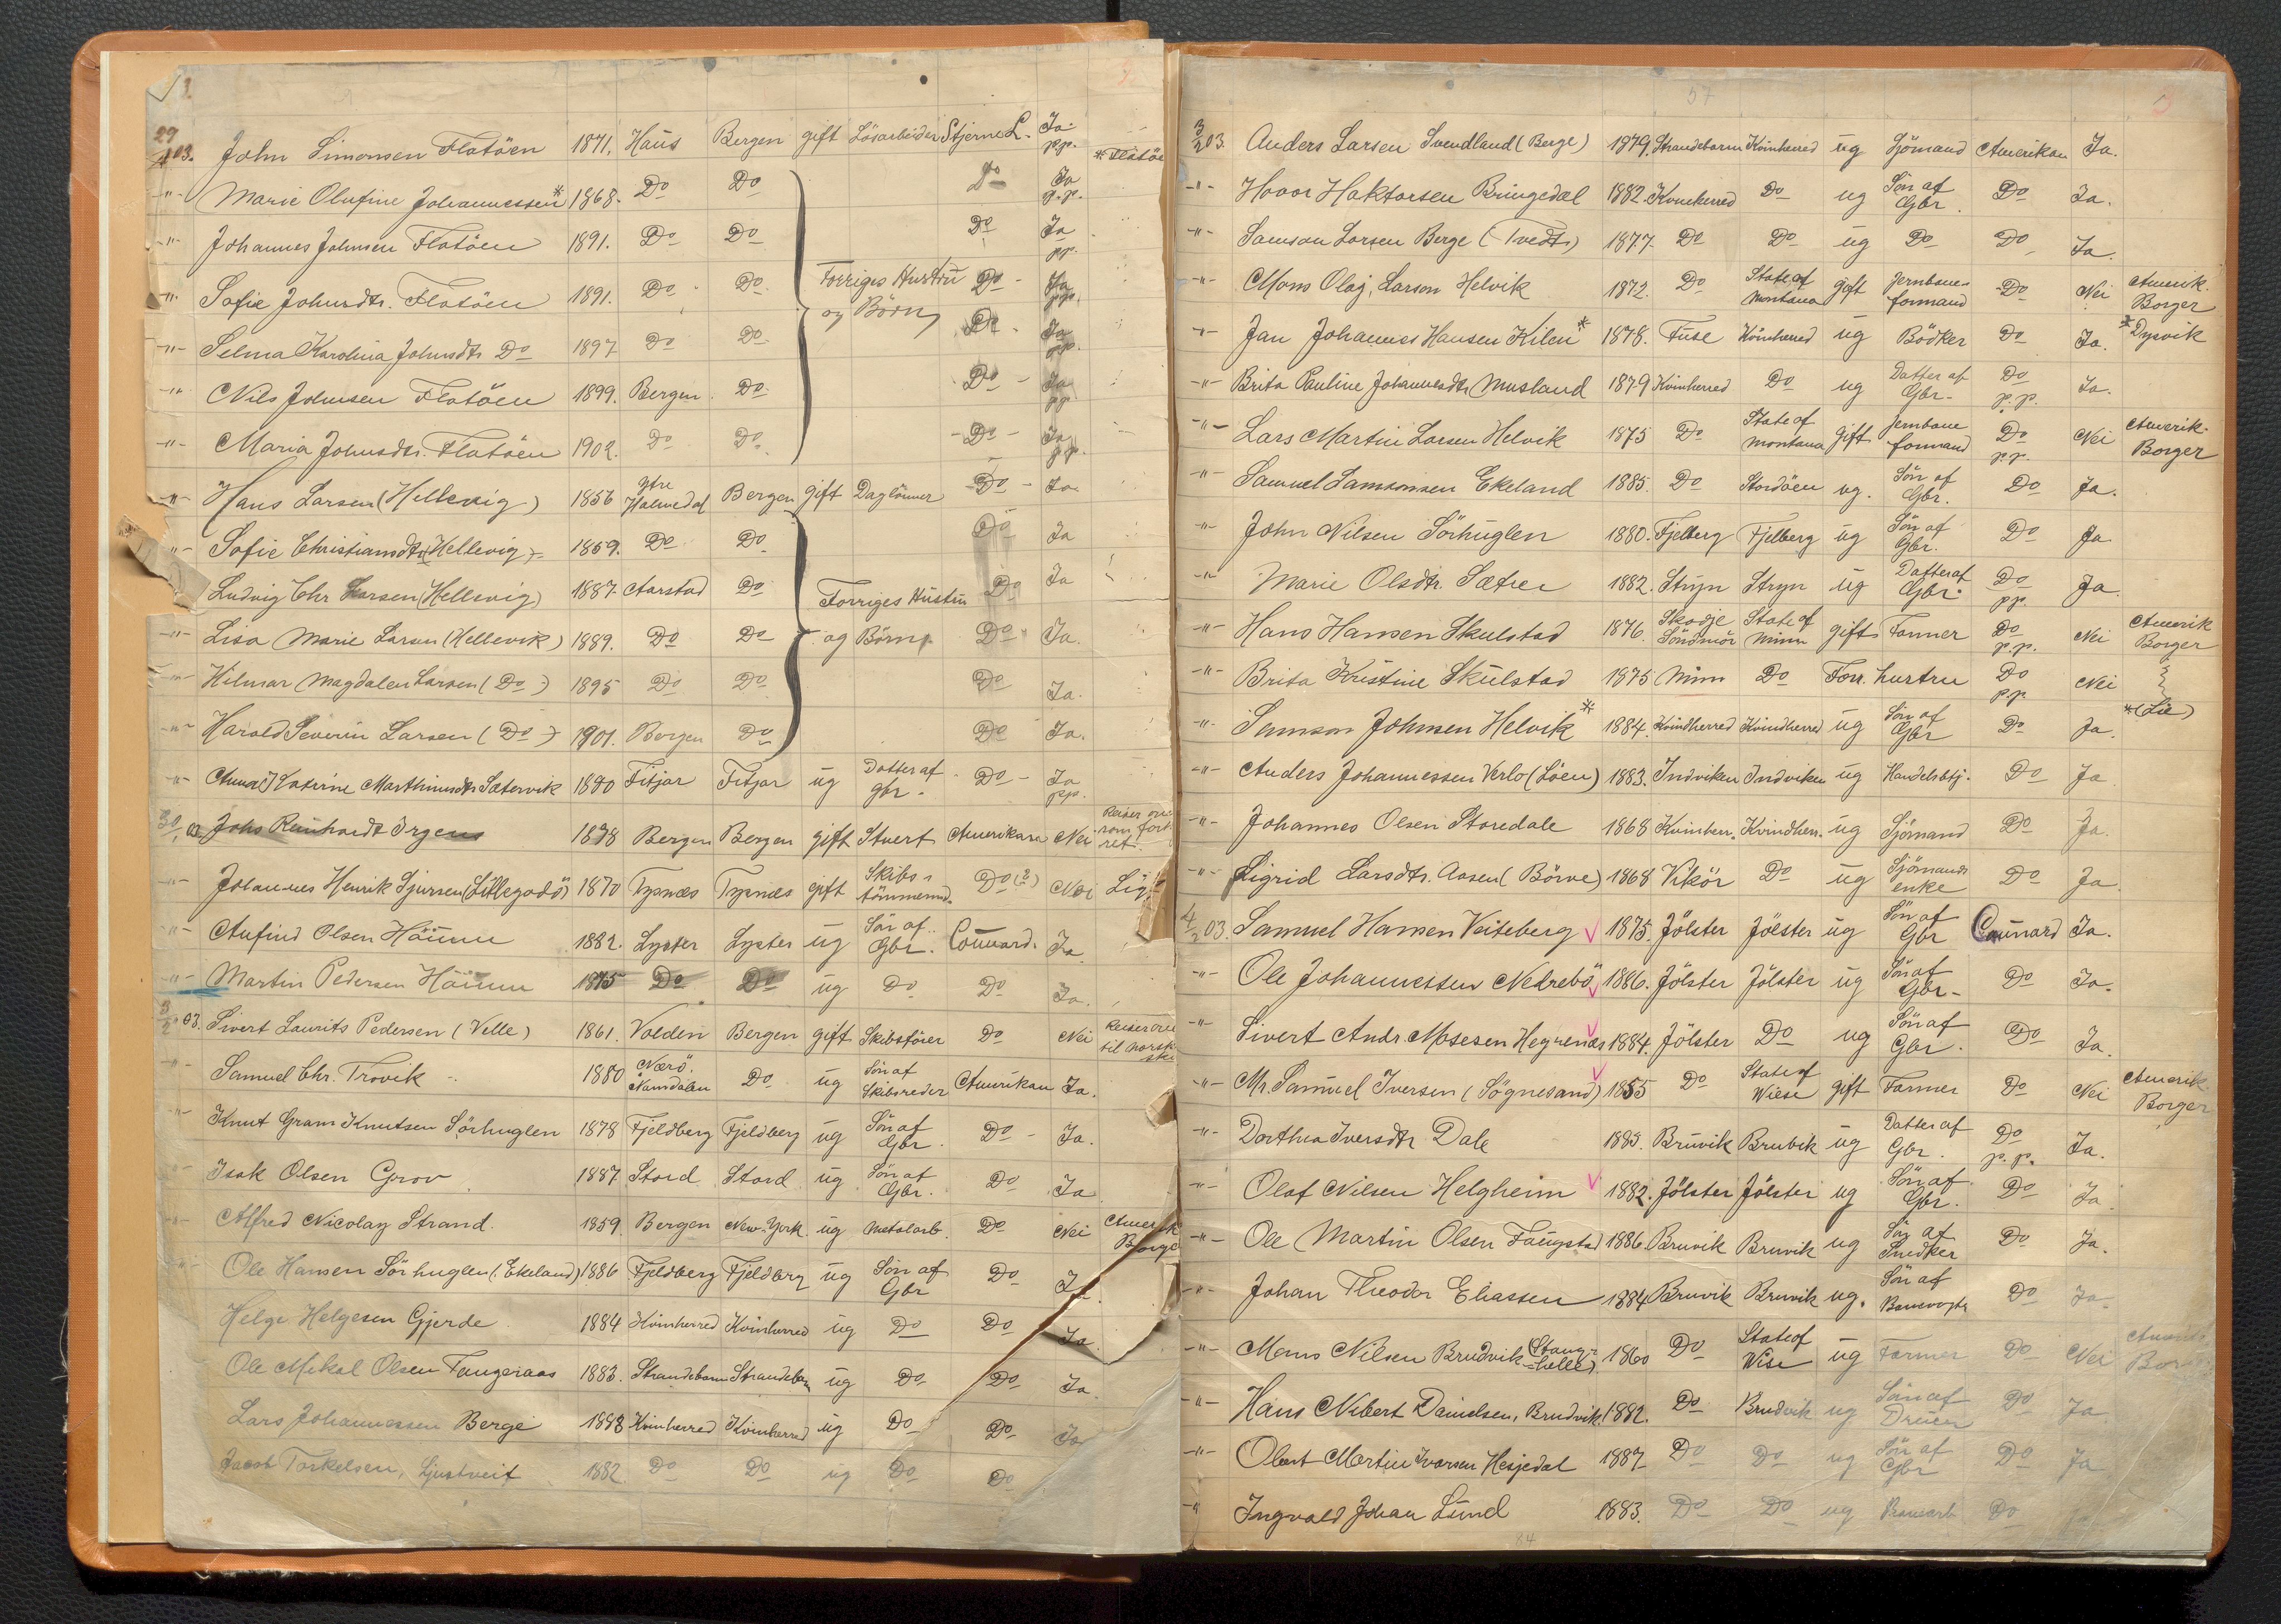 29/1 03. John Simonsen Flatöen 1871. Haus Bergen gift Lösarbeider Stjerne L. Ja p.p. * Flatöe
-"- Marie Olufine Johannessen* 1868. Do Do Do Ja p.p.
-"- Johannes Johnsen Flatöen 1891. Do Do Do Ja pp.
-"- Sofie Johnsdtr. Flatöen 1891. Do Do Forriges Hustru Do Ja pp.
-"- Selma Karolina Johnsdtr Do 1897 Do Do og Börn Do Ja pp.
-"- Nils Johnsen Flatöen 1899. Bergen Do Do Ja pp
-"- Maria Johnsdtr. Flatöen 1902. Do Do Do Ja pp.
-"- Hans Larsen (Hellevig) 1856 Ytre Holmedal Bergen gift Daglönner Do Ja
-"- Sofie Christiansdtr (Hellevig) 1859. Do Do Do Ja
Ludvig Chr Larsen (Hellevig) 1887. Aarstad Do Forriges Hustru Do Ja
-"- Lisa Marie Larsen (Hellevik) 1889. Do Do og Börn Do Ja.
-"- Hilmar Magdalen Larsen (Do) 1895 Do Do Do Ja.
-"- Harald Severin Larsen (Do) 1901. Bergen Do Do Ja.
-"- Anna Katrine Marthinusdtr Sætervik 1880 Fitjar Fitjar ug Datter af gbr. Do Ja pp.
30/1 03. Johs Reinhardt Irgens 1878 Bergen Bergen gift Stuert Amerikan Nei Reiser
-"- Johannes Henrik Sjursen (Lillegodö) 1870 Tysnæs Tysnæs gift Skibstömmermd. Do (2) Nei
-"- Anfind Olsen Höium 1882. Lyster Lyster ug Sön af Gbr. Counard. Ja.
-"- Martin Pedersen Höium 1875 Do Do ug Do Do Ja.
3/2 03. Sivert Laurits Pedersen (Velle) 1861. Volden Bergen gift Skibsförer Do Nei Reiser til norsk
-"- Samuel Chr. Trovik 1880 Nærö. Namdalen Do ug Sön af Skibsreder Amerikan Ja.
-"- Knut Gram Knutsen Sörhuglen 1878 Fjeldberg Fjeldberg ug Sön af Gbr. Do Ja.
-"- Isak Olsen Grov 1887 Stord Stord ug Sön af Gbr. Do Ja
-"- Alfred Nicolay Strand. 1859. Bergen New-York ug Metalarb. Do Nei Amerik Borge
-"- Ole Hansen Sörhuglen (Ekeland) 1886 Fjeldberg Fjeldberg ug Sön af Gbr Do Ja.
Helge Helgesen Gjerde 1884 Kvinherred Kvinherred ug Do Do Ja
Ole Mikal Olsen Tangeraas 1883. Strandebarm Strandebarm ug Do Do Ja.
Lars Johannessen Berge 1883 Kvinherred Kvinherred ug Do Do Ja
Jacob Torkelsen, Ljustveit 1882. Do Do ug Do Do
57
3/2 03. Anders Larsen Svendland (Berge) 1879. Strandebarm Kvinherred ug Sjömand Amerikan Ja.
-"- Hovor Haktorsen Bringedal 1882. Kvinherred Do ug Sön af Gbr. Do Ja.
-"- Samson Larsen Berge (Tvedt) 1877. Do Do ug Do Do Ja.
-"- Mons Olaj. Larson Helvik 1872. Do State of Montana gift Jernbaneformand Do Nei Amerik. Borger
-"- Jan Johannes Hansen Kilen* 1878. Fuse Kvinherred ug Bödker Do Ja. * Dysvik
-"- Brita Pauline Johannesdtr Musland 1879 Kvinherred Do ug Datter af Gbr- Do p.p. Ja.
-"- Lars Martin Larsen Helvik 1875 Do State of Montana gift Jernbaneformand Do p.p. Nei Amerik. Borger
-"- Samuel Samsonsen Ekeland 1885. Do Stordöen ug. Sön af Gbr. Do Ja.
-"- John Nilsen Sörhuglen 1880. Fjelberg Fjelberg ug Sön af Gbr. Do Ja.
-"- Marie Olsdtr. Sætren 1882. Stryn Stryn ug Datter af Gbr. Do pp. Ja.
-"- Hans Hansen Skulstad 1876. Skodje Söndmör State of Minn gift Farmer Do p.p. Nei Amerik Borger
-"- Brita Kristine Skulstad 1875 Minn Do Forr. hustru Do p.p Nei
-"- Samson Johnsen Helvik* 1884. Kvindherred Kvindherred ug Sön af Gbr Do Ja. *(Lie)
-"- Anders Johannessen Verlo (Löen) 1883. Indviken Indviken ug Handelsbtj. Do Ja
-"- Johannes Olsen Storedale 1868 Kvinherr. Kvindherr. ug Sjömand Do Ja.
-"- Sigrid Larsdtr. Aasen (Börve) 1868 Vikör Do ug Sjömands enke Do Ja.
4/2 03. Samuel Hansen Veiteberg 1875. Jölster Jölster ug Sön af Gbr Counard Ja.
-"- Ole Johannessen Nedrebö 1886. Jölster Jölster ug Sön af Gbr- Do Ja.
-"- Sivert Andr. Mosesen Hegrenæs 1884. Jölster Do ug Sön af Gbr. Do Ja.
-"- Mr. Samuel Iversen (Sögnesand) 1855 Do State of Wisc gift Farmer Do Nei Amerik Borger
-"- Dorthea Iversdtr Dale 1885. Bruvik Bruvik ug Datter af Gbr. Do p.p. Ja.
-"- Olaf Nilsen Helgheim 1882. Jölster Jölster ug Sön af Gbr. Do Ja.
-"- Ole Martin Olsen Faugstad 1886. Bruvik Bruvik ug Sön af Snedker Do Ja.
-"- Johan Theodor Eliassen 1884 Bruvik Bruvik ug. Sön af Banevogter Do Ja.
-"- Mons Nilsen Brudvik (Stanghelle) 1860 Do State of Wise ug Farmer Do Nei
-"- Hans Nibert Danielsen, Brudvik 1882. Do Brudvik ug Sön af Do Ja
-"- Obert Martin Ivarsen Hesjedal 1887 Do Do ug Sön af Gbr Do Ja
-"- Ingvald Johan Lund 1883. Do Do ug Do
84